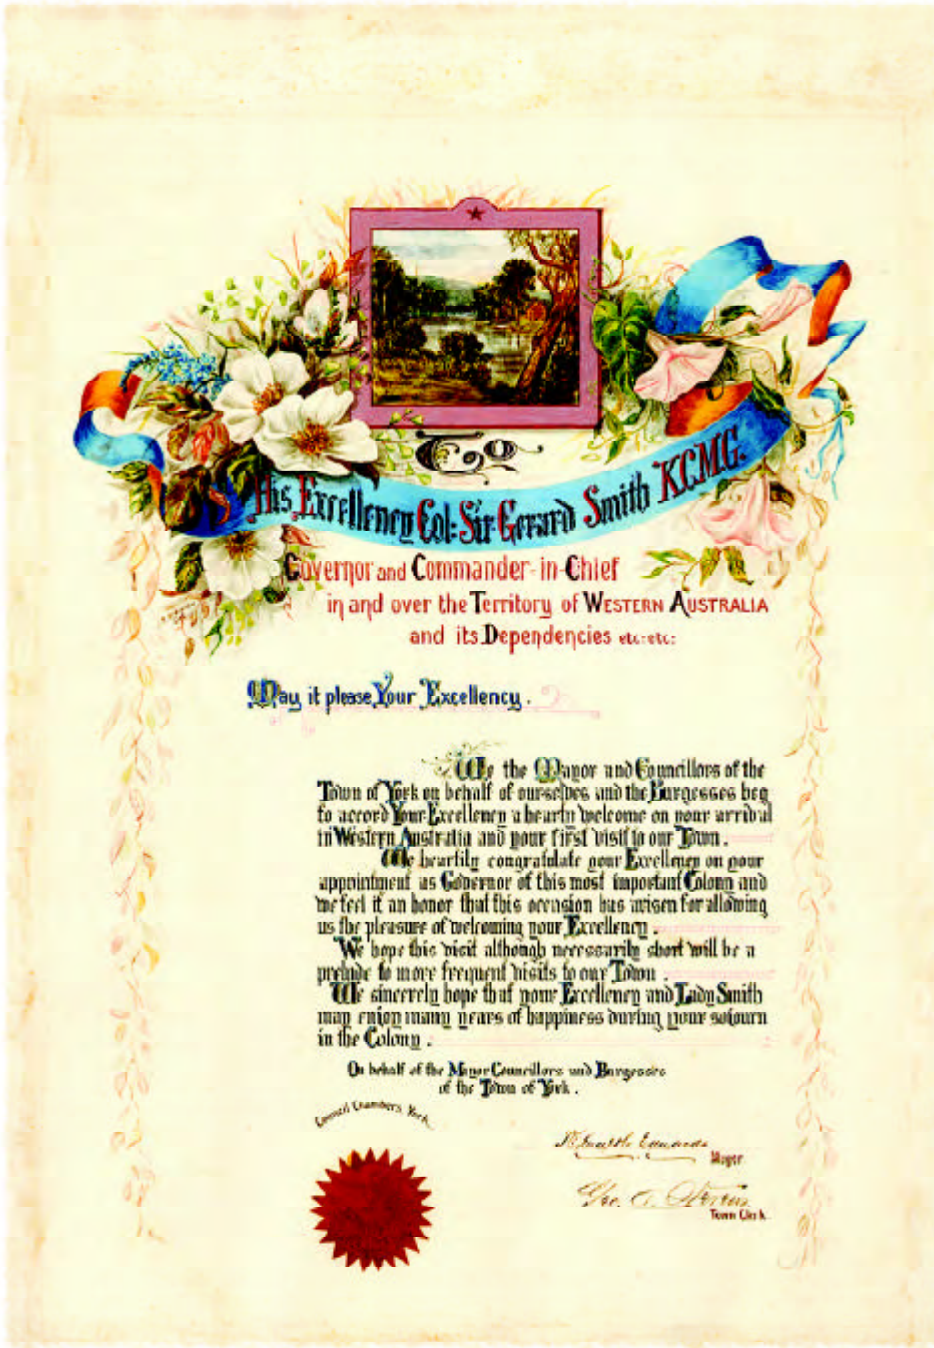 To
His Excellency Col: Sir Gerard Smith KCMG.
Governor and Commander-in-Chief
in and over the Territory of WESTERN AUSTRALIA
and its Dependencies etc: etc:
May it please Your Excellency.
We the Mayor and Councillors of the
Town of York on behalf of ourselves and the Burgesses beg
to accord Your Excellency a hearty welcome on your arrival
in Western Australia and your first visit to our Town.
We heartily congratulate your Excellency on your
appointment as Governor of this most important Colony and
we feel it an honor that this occasion has arisen for allowing
us the pleasure of welcoming your Excellency.
We hope this visit although necessarily short will be a
prelude to more frequent visits to our Town.
We sincerely hope that your Excellency and Lady Smith
may enjoy many years of happiness during your sojourn
in the Colony.
On behalf of the Mayor Councillors and Burgesses
of the Town of York.
Council Chambers, York.
Edwards
Mayor
Geo.
Town Clerk